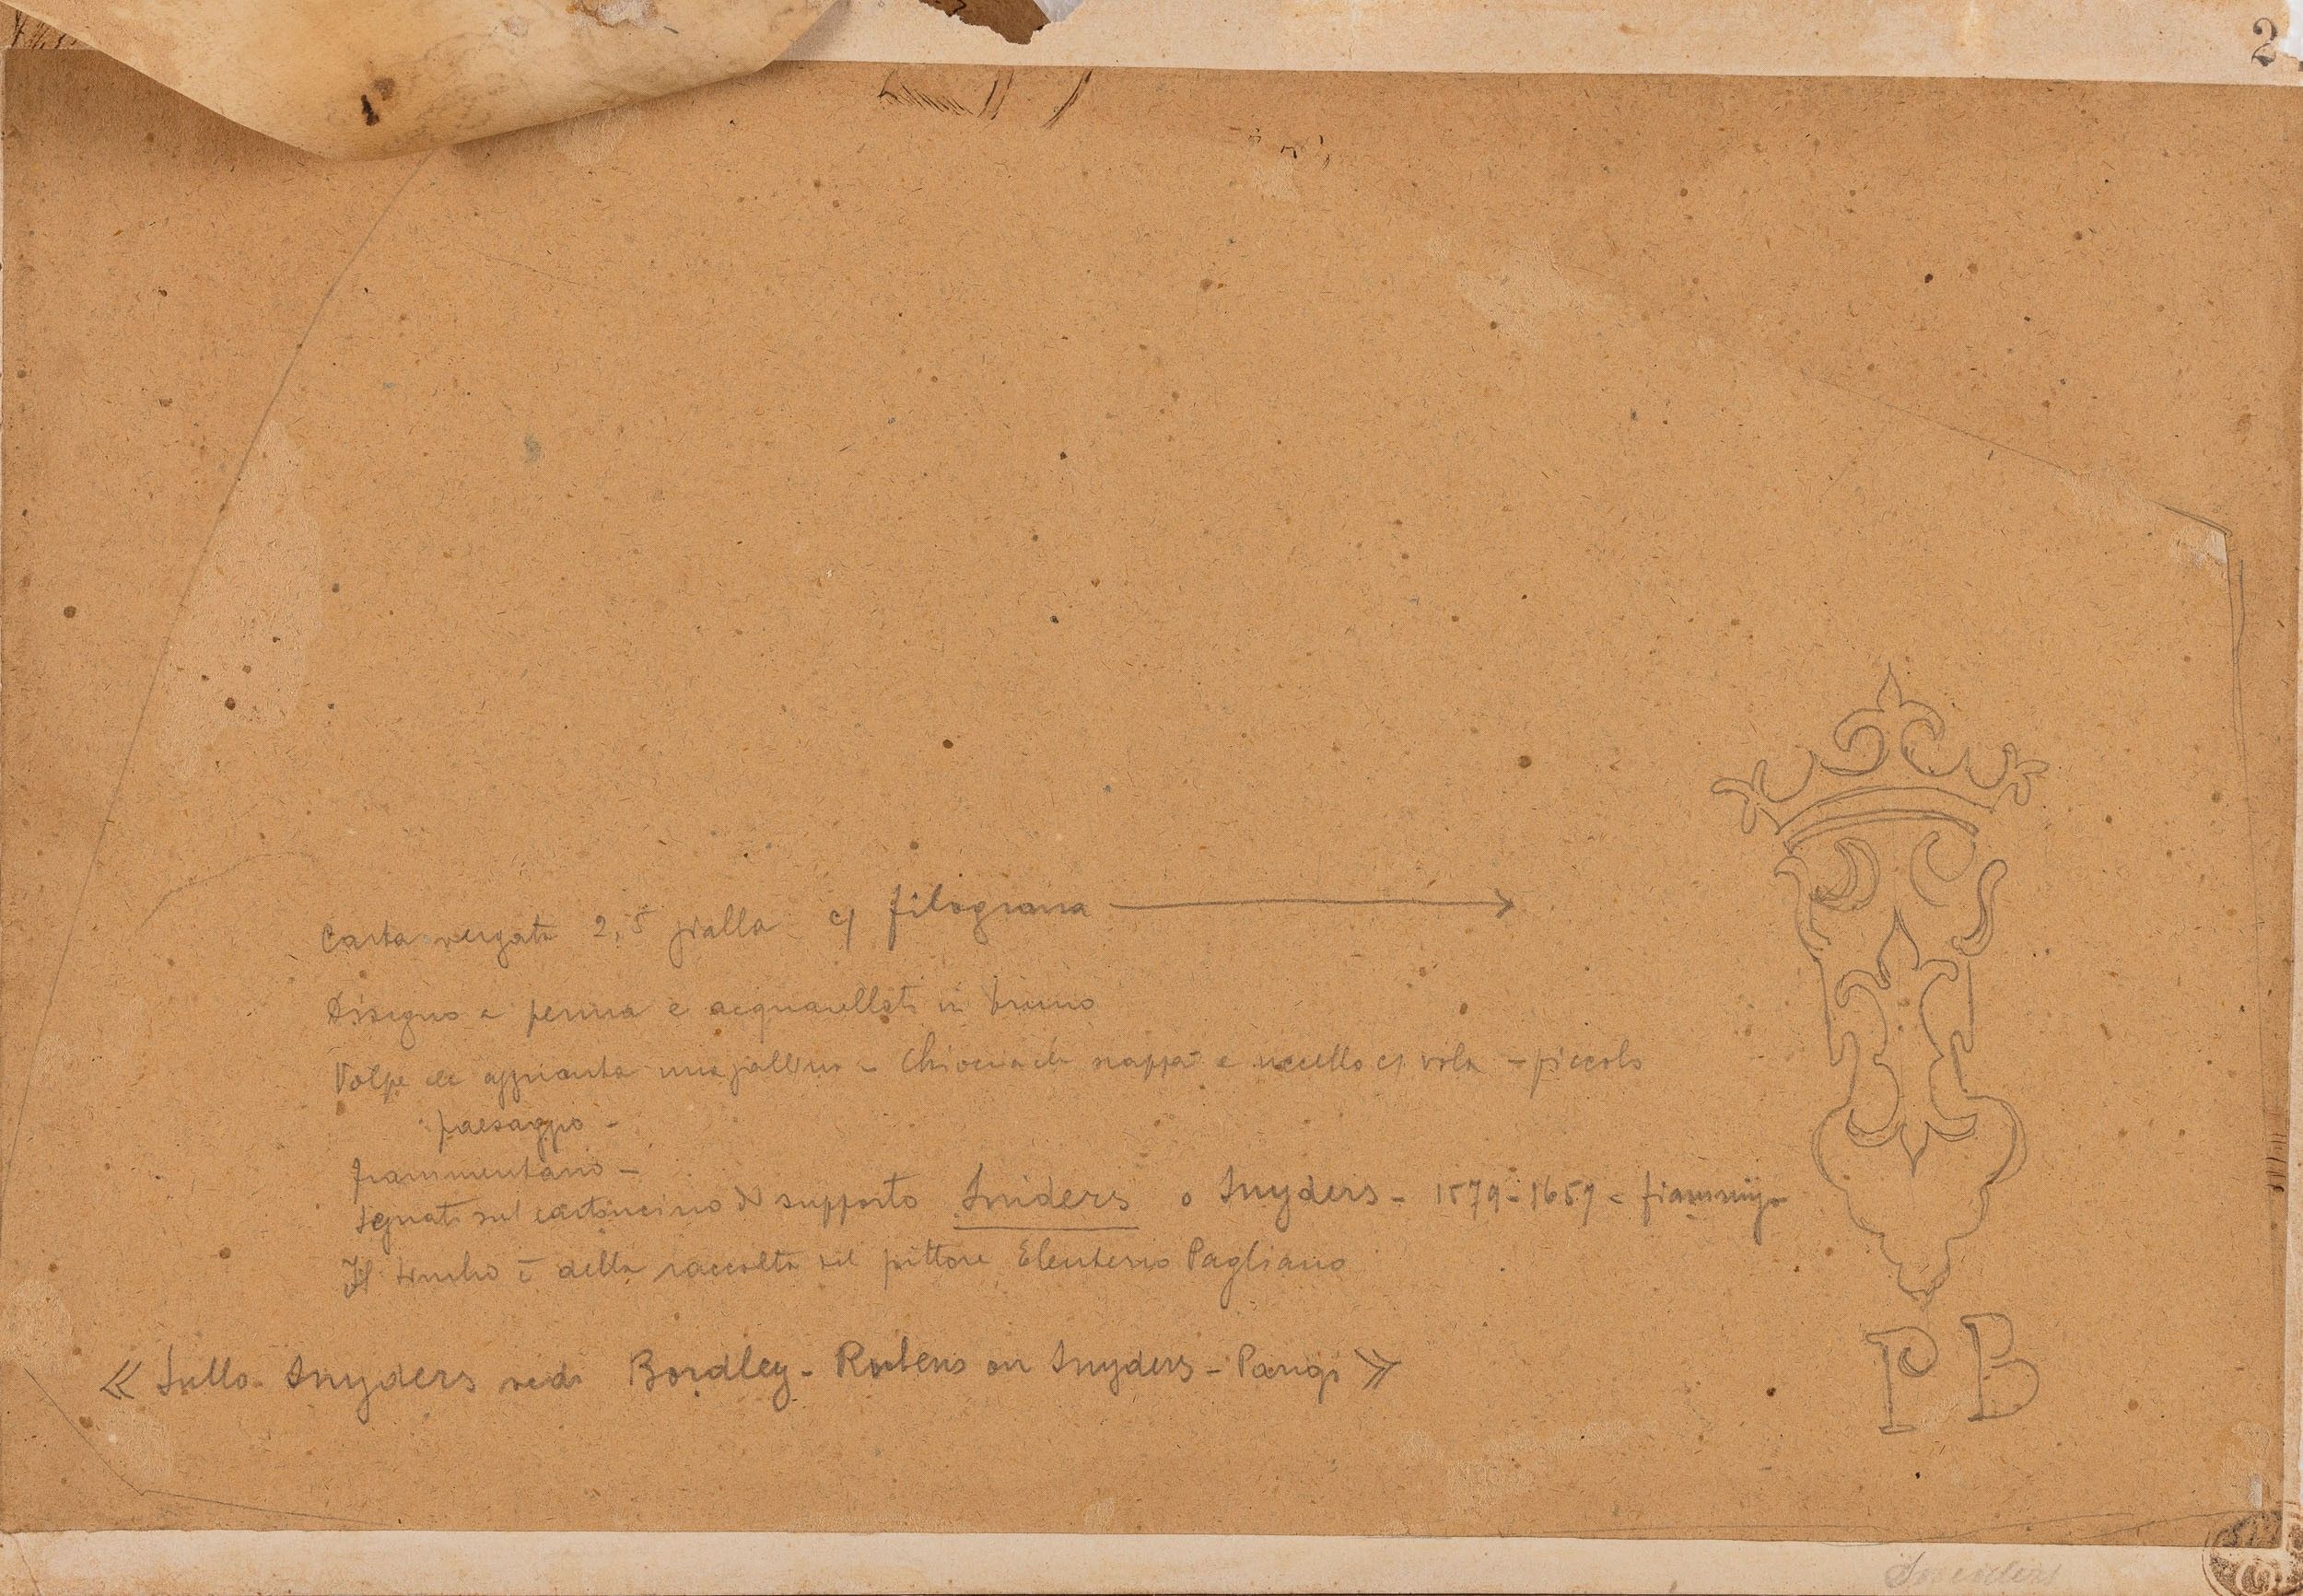 2
Carta vergata 2,5 gialla c/ filograna
Disegno a penna e acquarellato in bruno
Volpe che agguanta una gallina - Chioccia che scappa e uccello c/ vola - piccolo
paesaggio -
frammentario -
Segnato sul cartoncino di supporto Sniders o Snyders - 1579-1657 - fiammingo
Il timbro è della raccolta del pittore Eleuterio Pagliano
« Sullo Snyders vedi Bordley - Rubens ou Snyders - Parigi »
P B
Sniders